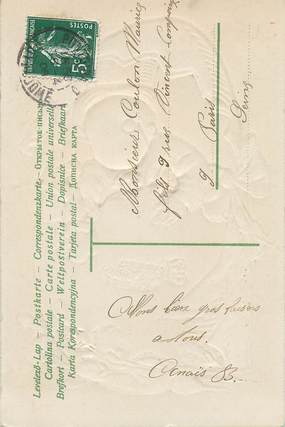 Levelező-Lap – Postkarte – Correspondenzkarte – Открытое письмо
Cartolina postale – Carte postale – Union postale universelle
Brefkort – Postcard – Weltpostverein – Dopisnice – Briefkaart
Karta Korespondencyjna – Tarjeta postal – Дописна карта
POSTES
5c
Monsieur Coulon Maurice
fils 9 rue Vincent Compoing
Paris
Seine
gros baisers
à tous.
Anaïs B.